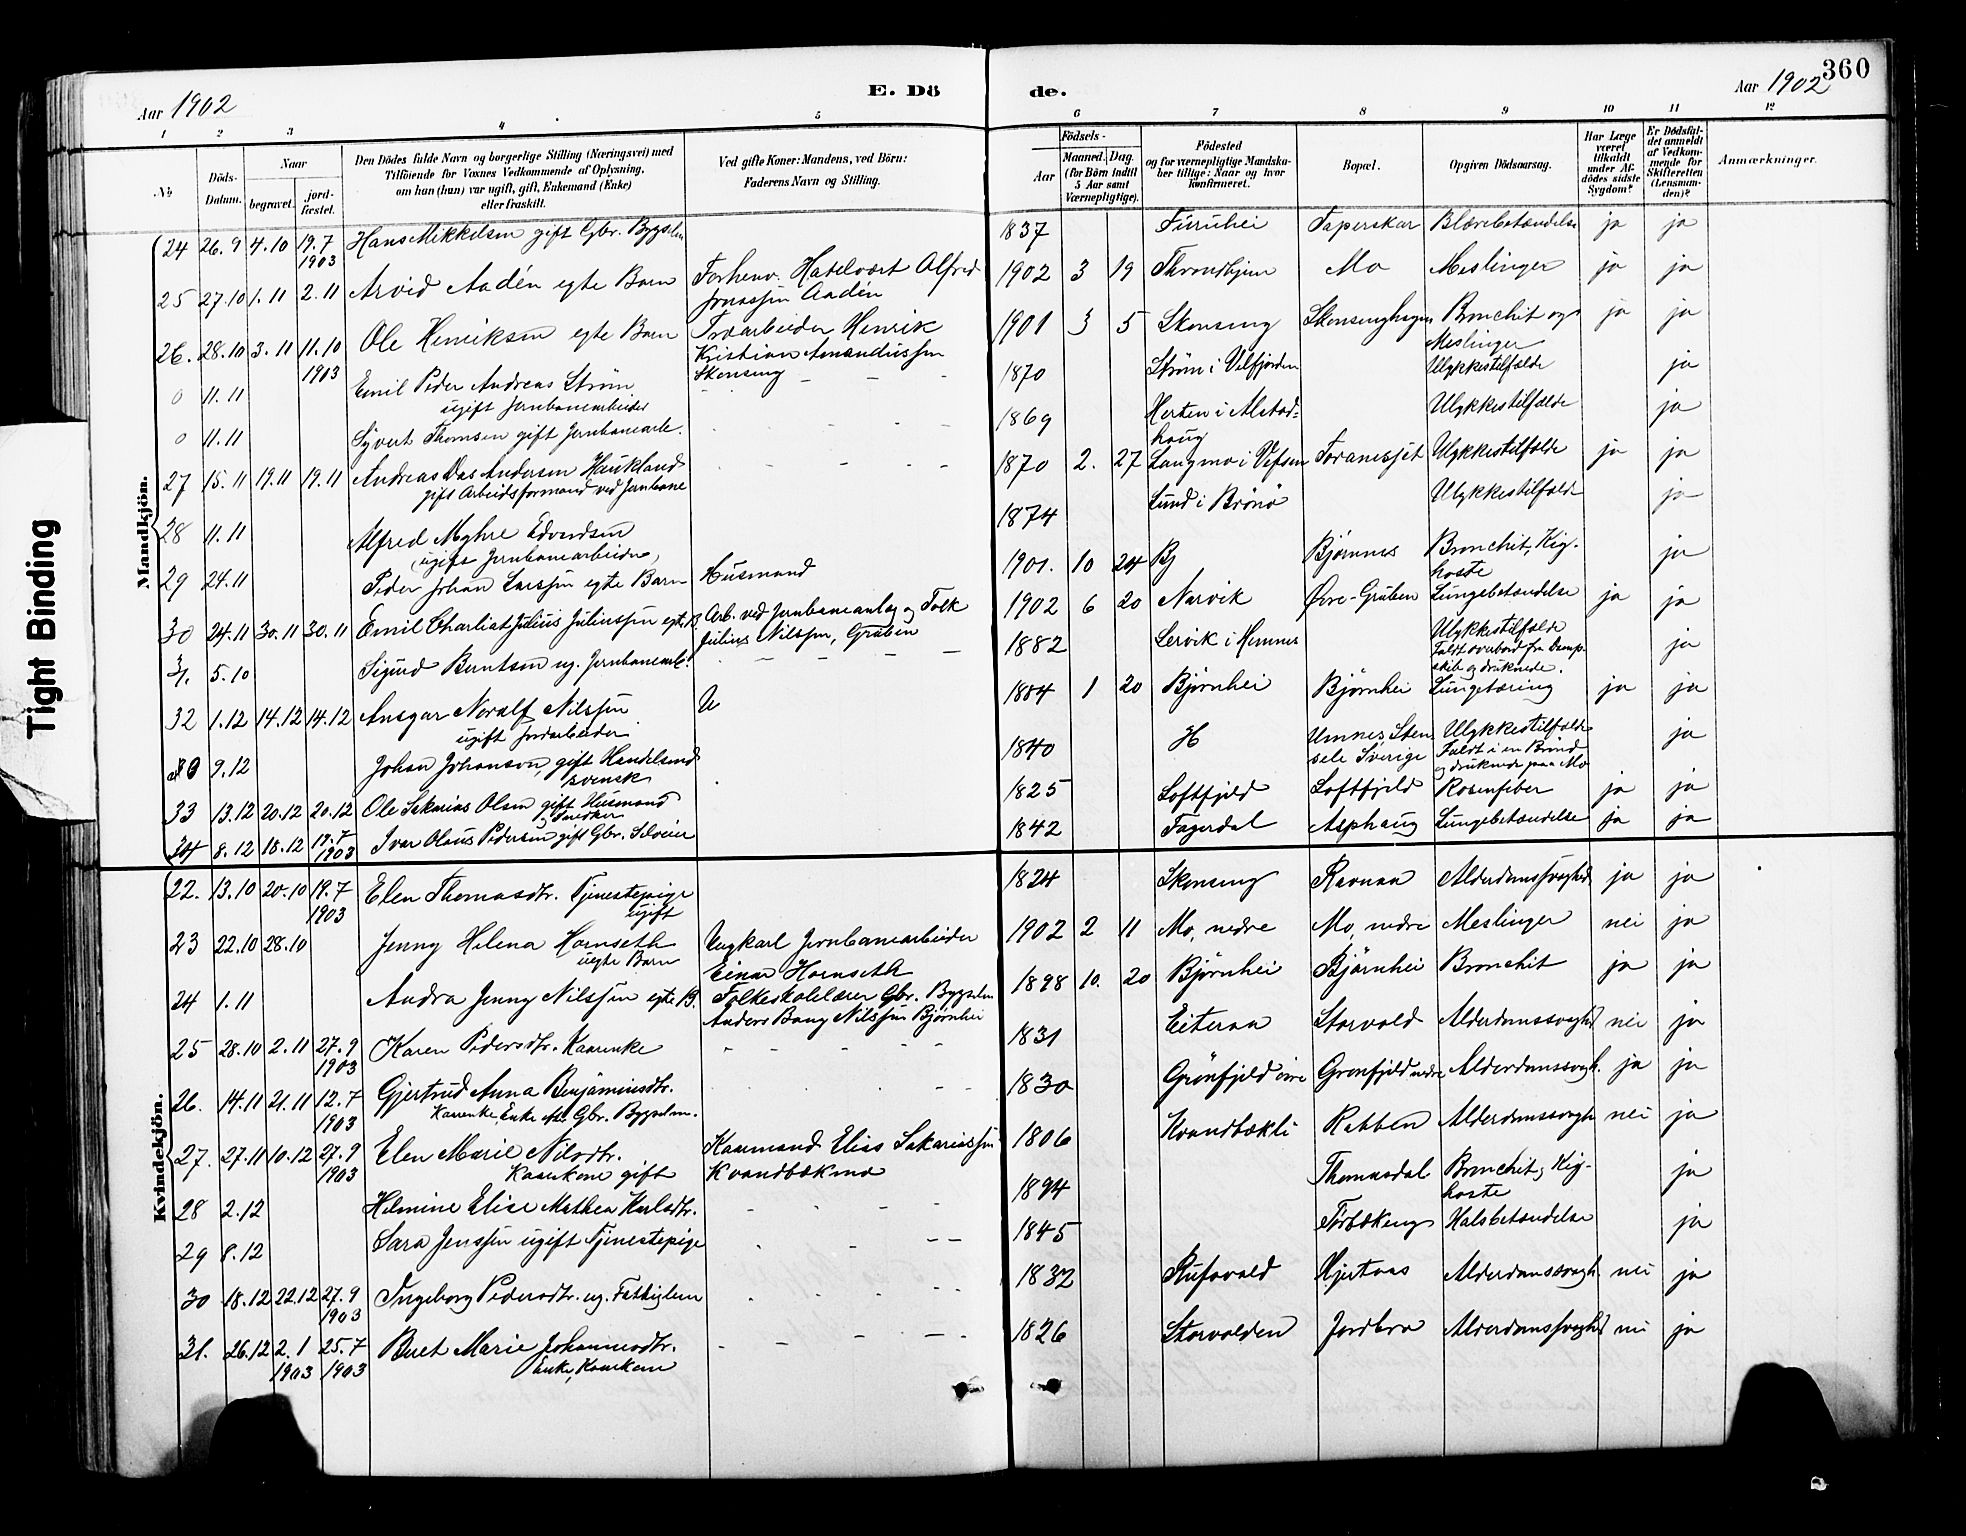 360
Aar 1902
E. Dö
de.
Aar 1902
1 2 3 4 5 6 7 8 9 10 11 12
No
Döds-Datum.
Naar
begravet.
jord-fæstet.
Den Dödes fulde Navn og borgerlige Stilling (Næringsvei) med
Tilföiende for Voxnes Vedkommende af Oplysning,
om han (hun) var ugift, gift, Enkemand (Enke)
eller fraskilt.
Ved gifte Koner: Mandens, ved Börn:
Faderens Navn og Stilling.
Födsels-
Aar
Maaned. Dag.
(for Börn indtil
5 Aar samt
Værnepligtige).
Födested
og for værnepligtige Mandska-
ber tillige: Naar og hvor
konfirmeret.
Bopæl.
Opgiven Dödsaarsag.
Har Læge
været
tilkaldt
under Af-
dödes sidste
Sygdom?
Er Dödsfal-
det anmeldt
af Vedkom-
mende for
Skifteretten
(Lensman-
den)?
Anmærkninger.
Mandkjön.
24 26.9 4.10 19.7 1903 Hans Mikkelsen gift Gbr. Bygselm 1837 Furuhei Taperskar Blærebetændelse ja ja
25 27.10 1.11 2.11 Arvid Aadén egte Barn Forhenv. Hotelvært Alfred Jonassen Aadén 1902 3 19 Throndhjem Mo Meslinger ja ja
26. 28.10 3.11 11.10 1903 Ole Henriksen egte Barn Træarbeider Henrik Kristian Amandussen Skonseng 1901 3 5 Skonseng Skonsenghagen Bronchit og Meslinger ja ja
0 11.11 Emil Peder Andreas Strøm ugift Jernbanearbeider 1870 Strøm i Velfjorden Ulykkestilfælde ja
0 11.11 Syvert Thomsen gift Jernbanearb. 1869 Herten i Alstad-haug Ulykkestilfælde ja
27 15.11 19.11 19.11 Andreas Das Andersen Haukland gift Arbeidsformand ved Jernbane 1870 2. 27 Langmo i Vefsen Foranesjet Ulykkestilfælde ja ja
28 11.11 Alfred Myhre Edvardsen ugift Jernbanearbeider 1874 Lund i Brönö Ulykkestilfælde ja
29 24.11 Peder Johan Larssen egte Barn Husmand 1901. 10 24 Bj Bjørnnes Bronchit, Kig-hoste ja
30 24.11 30.11 30.11 Emil Charliat Julius Juliussen egte B. Arb. ved Jernbaneanlæg og Folk Julius Nilssen, Gruben 1902 6 20 Narvik Øvre-Gruben Lungebetændelse ja ja
31. 5.10 Sigurd Berntsen ug. Jernbanearb. 1882 Lervik i Hemnes Ulykkestilfælde Faldt overbord fra Damp-skib og druknede. ja
32 1.12 14.12 14.12 Ansgar Noralf Nilssen ugift Jordarbeider U 1884 1 20 Bjørnhei Bjørnhei Lungetæring ja ja
0 9.12 Johan Johanson, gift Handelsmd svensk 1840 H Umnes Sten-sele Sverige Ulykkestilfælde Faldt i en Brönd og druknede paa Mo ja
33 13.12 20.12 20.12 Ole Sakarias Olsen gift Husmand Snedker 1825 Loftfjeld Loftfjeld Rosenfeber ja ja
34 8.12 18.12 19.7 1903 Ivar Olaus Pedersen gift Gbr. Selveier 1842 Fagerdal Asphaug Lungebetændelse ja ja
Kvindekjön.
22. 13.10 20.10 19.7 1903 Elen Thomasdtr. Tjenestepige ugift 1824 Skonseng Ravnaa Alderdomssvaghed ja ja
23 22.10 28.10 Jenny Helena Hornseth uegte Barn Ungkarl Jernbanearbeider Einar Hornseth 1902 2 11 Mo, nedre Mo, nedre Meslinger nei ja
24 1.11 Andra Jenny Nilssen egte B. Folkeskolelærer Gbr. Bygselm Anders Bang Nilssen Bjørnhei 1898 10. 20 Bjørnhei Bjørnhei Bronchit ja ja
25 28.10 2.11 27.9 1903 Karen Pedersdtr. Kaarenke 1831 Eiteraa Storvold Alderdomssvaghd nei ja
26. 14.11 21.11 12.7 1903 Gjertrud Anna Benjaminsdtr. Kaarenke, Enke Aft. Gbr. Bygselm. 1830 Grönfjeld övre Grønfjeld nedre Alderdomssvagh. ja ja
27. 27.11 10.12 27.9 1903 Elen Marie Nilsdtr. Kaarkone gift Kaarmand Elias Sakariassen Kvandbækmo 1806 Kvandbækli Rabben Alderdomssvagh nei ja
28 2.12 Helmine Elise Mathea Karlsdtr. 1894 Thomasdal Bronchit, Kig-hoste ja
29 8.12 Sara Jenssen ugift Tjenestepige 1845 Halsbetændelse ja
30 18.12 22.12 27.9 1903 Ingeborg Pedersdtr. ug. Fattiglem 1832 Rufsvold Hjertaas Alderdomssvagh. nei ja
31. 26.12 2.1 1903 25.7 1903 Beret Marie Johannesdtr. Enke, Kaarkone 1826 Storvolden Jordbro Alderdomssvaghd nei ja
Tight Binding